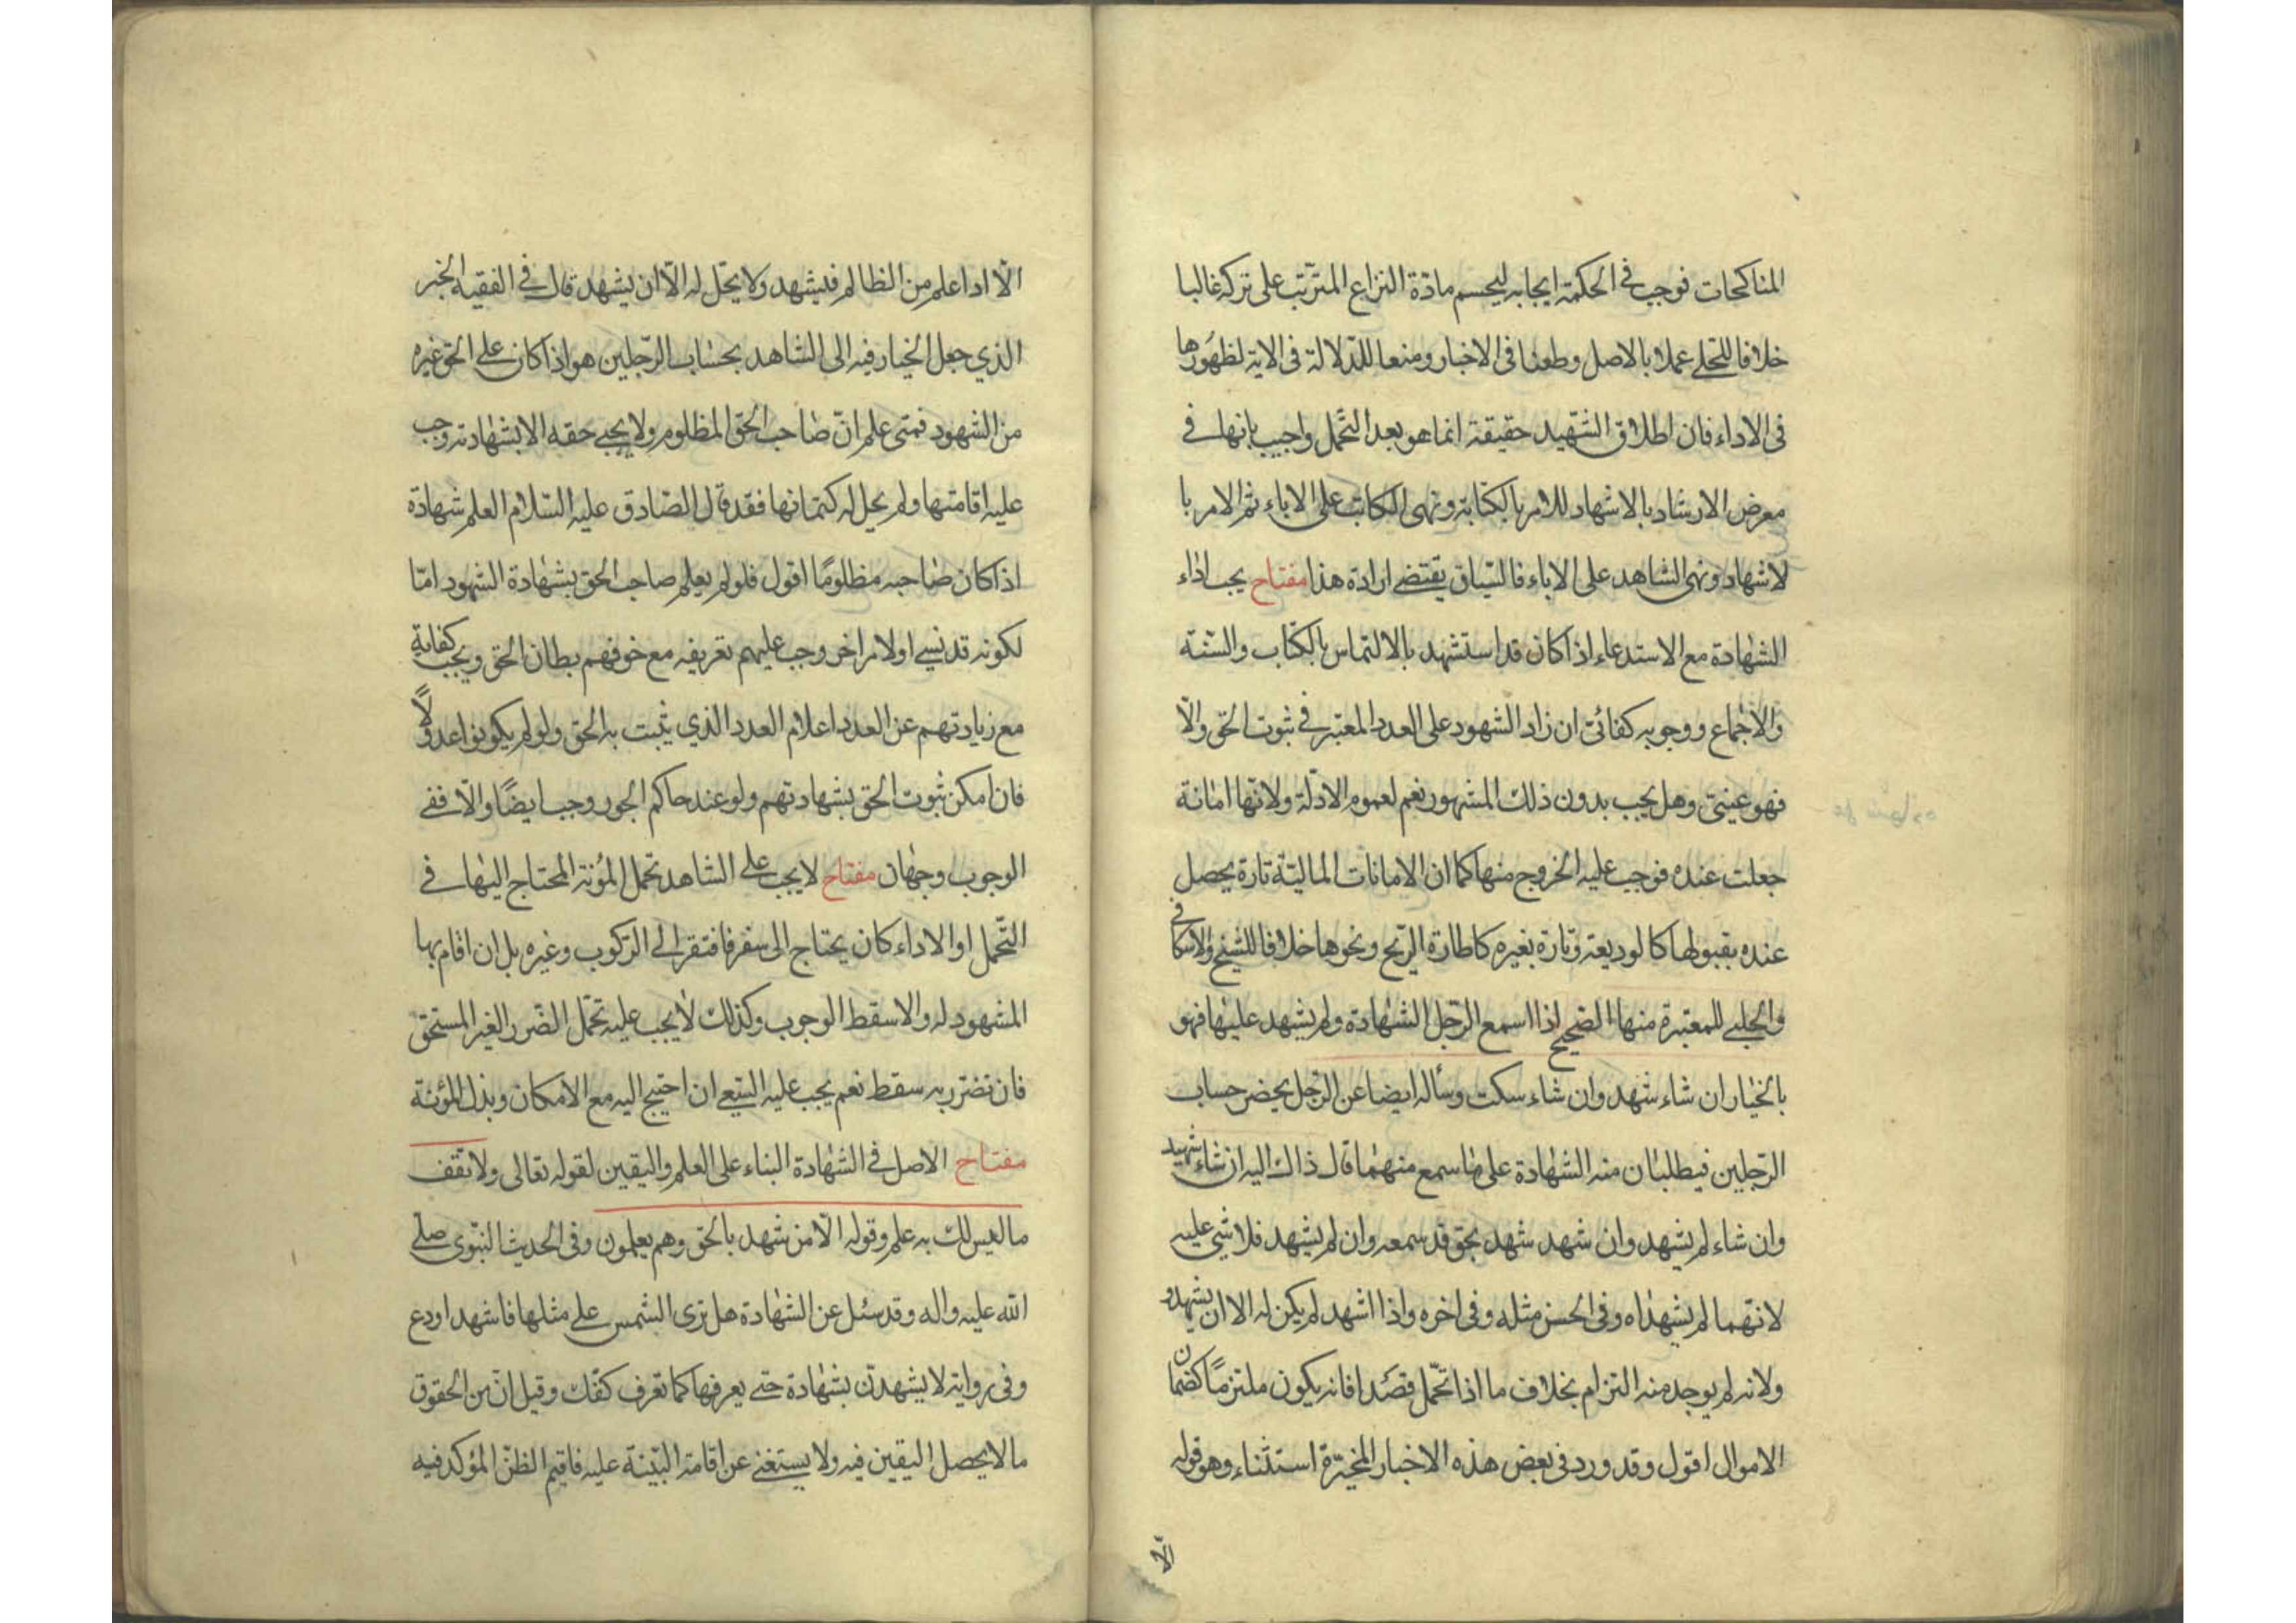 المناكحات فوجب فى الحكمة ايجابه ليحسم مادّة النزاع المترتّب على تركه غالبا
خلافا للحلے عملا بالاصل وطعنا فى الاخبار ومنعا للدّلالة فى الاية لظهُورها
فى الاداء فان اطلاق الشهيد حقيقة انما هو بعد التحمّل واجيب بانها فے
معرض الارشاد بالاشهاد للامر بالكتابة ونهى الكاتب على الاباء ثم الامر با
لاشهاد ونهى الشاهد على الاباء فالسّياق يقتضے ارادة هذا مفتاح يجب اداء
الشهادة مع الاستدعاء اذا كان قد استشهد بالالتماس بالكتاب والسّنّة
والاجماع ووجوبه كفائىّ ان زاد الشهود على العدد المعتبر فے ثبوت الحق والّا
فهو عينىّ وهل يجب بدون ذلك المشهور نعم لعموم الادلّة ولانّها امانة
جعلت عنده فوجب عليه الخروج منها كما ان الامانات الماليّة تارة يحصل
عنده بقبولها كالوديعة وتارة بغيره كاطارة الريح ونحوها خلافا للشيخ والاسكافے
والحلبے للمعتبرة منها الصّحيح اذا اسمع الرّجل الشهادة ولم يشهد عليها فهو
بالخيار ان شاء شهد وان شاء سكت وسأله ايضا عن الرّجل يحضر حساب
الرّجلين فيطلبان منه الشهادة على ما سمع منهما قال ذاك اليه ان شاء شهيد
وان شاء لم يشهد وان شهد شهد بحق قد سمعه وان لم يشهد فلا شئ عليه
لانّهما لم يشهداه وفى الحسن مثله وفى اخره واذا اشهد لم يكن له الا ان يشهد و
ولانه لم يوجد منه التزام بخلاف ما اذا تحمّل قصدا فانه يكون ملتزمًا كضمان
الاموال اقول وقد ورد فى بعض هذه الاخبار المخيّرة استثناء وهو قوله
الّا
الّا اذا علم من الظالم فيشهد ولا يحّل له الّا ان يشهد قال فے الفقيه الخبر
الذي جعل الخيار فيه الى الشاهد بحساب الرّجلين هو اذا كان علے الحق غيره
من الشهود فمتى علم انّ صاحب الحق المظلوم ولا يحيے حقه الا بشهادته وجب
عليه اقامتها ولم يحل له كتمانها فقد قال الصّادق عليه السّلام العلم شهادة
اذا كان صاحبه مظلومًا اقول فلو لم يعلم صاحب الحق بشهادة الشهود امّا
لكونه قد نسے او لامر اخر وجب عليهم تعريفه مع خوفهم بطان الحق ويجب كفاية
مع زيادتهم عن العدد اعلام العدد الذي يثبت به الحق ولو لم يكونوا عدولًا
فان امكن ثبوت الحق بشهادتهم ولو عند حاكم الجور وجب ايضًا والّا ففے
الوجوب وجهان مفتاح لا يجب علے الشاهد تحمّل المؤنة المحتاج اليها فے
التّحمل او الاداء كان يحتاج الى سفر فافتقر الے الرّكوب وغيره بل ان اقام بها
المشهود له والا سقط الوجوب وكذلك لا يجب عليه تحمّل الضّرر الغير المستحق
فان تضّرر به سقط نعم يجب عليه السّعے ان احتيج اليه مع الامكان وبذل المؤنة
مفتاح الاصل فے الشهادة البناء على العلم واليقين لقوله تعالى ولا تقف
ما ليس لك به علم وقوله الّا من شهد بالحق وهم يعلمون وفى الحديث النبّوى صلے
الله عليه واله وقد سئل عن الشهادة هل ترى الشمس علے مثلها فاشهد او دع
وفى رواية لا يشهدنّ بشهادة حتے يعرفها كما تعرف كفّك وقيل انّ من الحقوق
ما لا يحصل اليقين فيه ولا يستغنے عن اقامة البّينة عليه فاقيم الظنّ المؤكد فيه